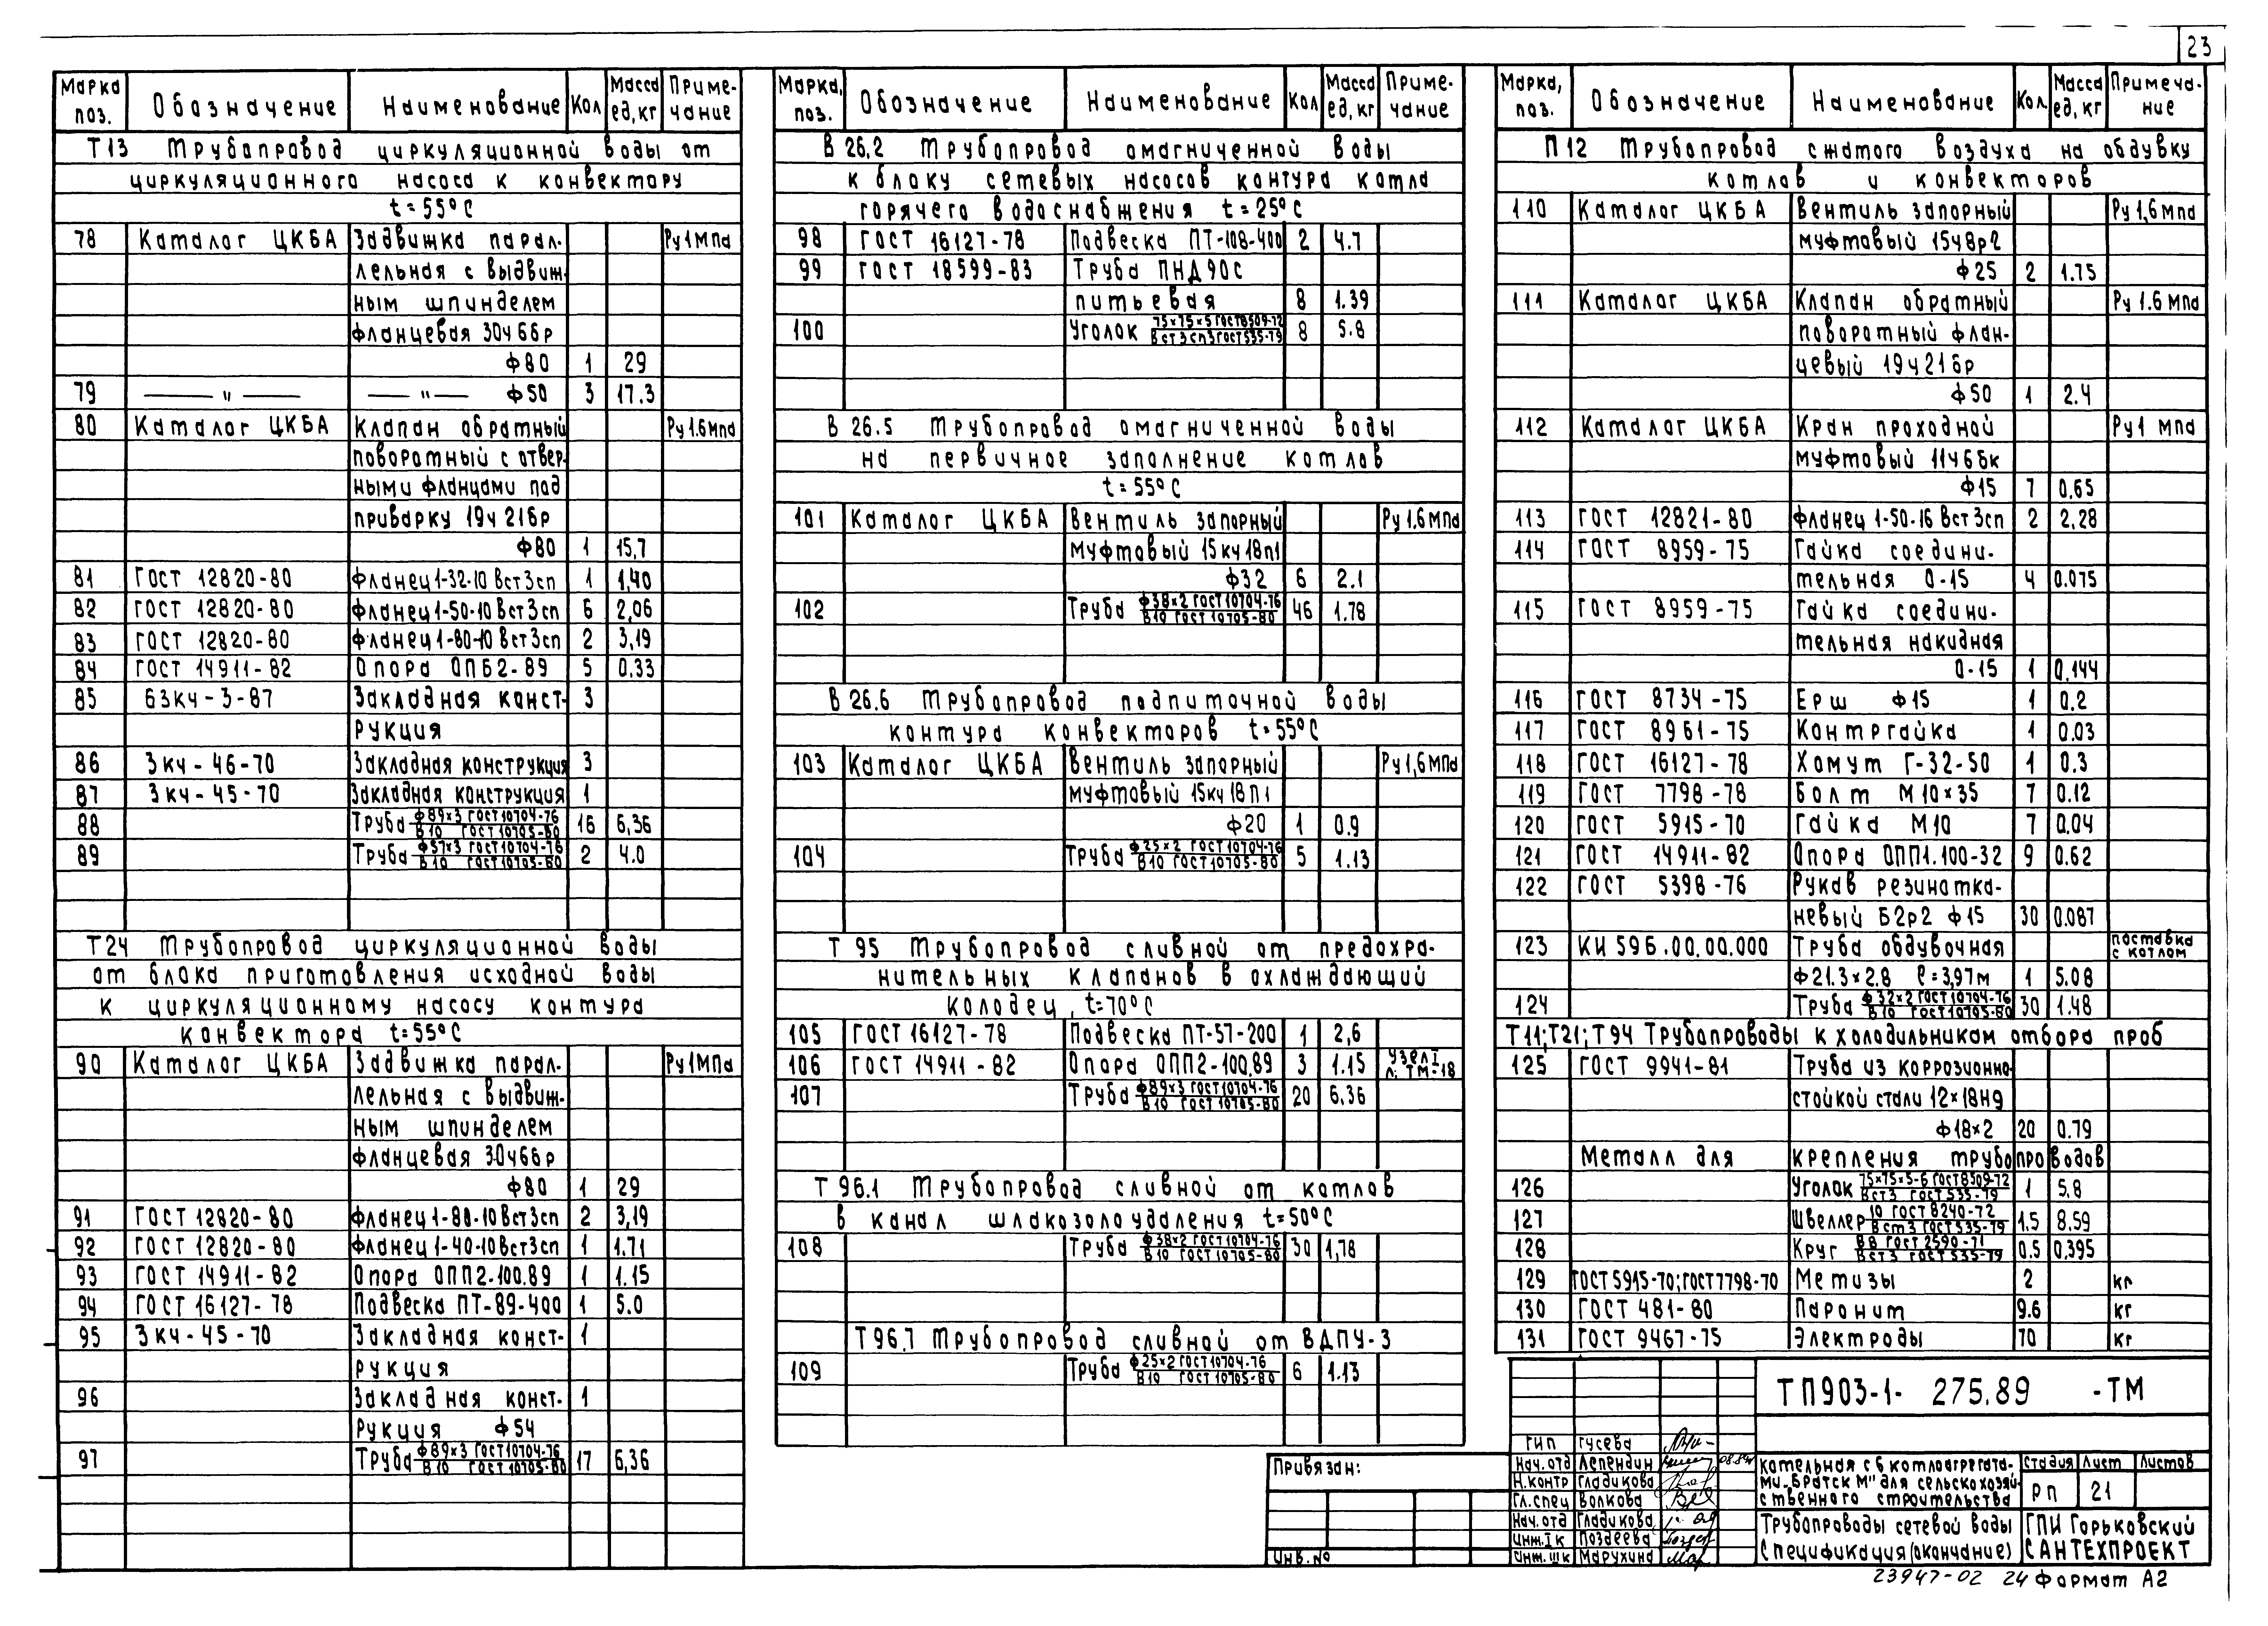 23
Марка поз. Обозначение Наименование Кол Масса ед, кг Примечание
Т13 Трубопровод циркуляционной воды от
циркуляционного насоса к конвектору
t=55°С
78 Каталог ЦКБА Задвижка парал- Ру1МПа
лельная с выдвиж-
ным шпинделем
фланцевая 30ч6бр
Ф80 1 29
79 — " — — " — Ф50 3 17.3
80 Каталог ЦКБА Клапан обратный Ру1.6мпа
поворотный с отвер-
ными фланцами под
приварку 19ч21бр
Ф80 1 15,7
81 ГОСТ 12820-80 Фланец1-32-10 Вст3сп 1 1,40
82 ГОСТ 12820-80 Фланец1-50-10 Вст3сп 6 2,06
83 ГОСТ 12820-80 Фланец1-80-10 Вст3сп 2 3,19
84 ГОСТ 14911-82 Опора ОПБ2-89 5 0,33
85 БЗКЧ-3-87 Закладная конст- 3
рукция
86 Зкч-46-70 Закладная конструкция 3
87 Зкч-45-70 Закладная конструкция 1
88 Труба Ф89×3 ГОСТ10704-76 / В10 ГОСТ10705-80 16 6,36
89 Труба Ф57×3 ГОСТ10704-76 / В10 ГОСТ10705-80 2 4.0
Т24 Трубопровод циркуляционной воды
от блока приготовления исходной воды
к циркуляционному насосу контура
конвектора t=55°С
90 Каталог ЦКБА Задвижка парал- Ру1МПа
лельная с выдвиж-
ным шпинделем
фланцевая 30ч6бр
Ф80 1 29
91 ГОСТ 12820-80 Фланец1-80-10Вст3сп 2 3,19
92 ГОСТ 12820-80 Фланец1-40-10Вст3сп 1 1.71
93 ГОСТ 14911-82 Опора ОПП2-100.89 1 1.15
94 ГОСТ 16127-78 Подвеска ПТ-89-400 1 5.0
95 Зкч-45-70 Закладная конст- 1
рукция
96 Закладная конст- 1
рукция Ф54
97 Труба Ф89×3 ГОСТ10704-76 / В10 ГОСТ10705-80 17 6,36
Марка, поз. Обозначение Наименование Кол Масса ед, кг Примечание
В 26.2 Трубопровод омагниченной воды
к блоку сетевых насосов контура котла
горячего водоснабжения t=25°С
98 ГОСТ 16127-78 Подвеска ПТ-108-400 2 4.7
99 ГОСТ 18599-83 Труба ПНД90С
питьевая 8 1.39
100 Уголок 75×75×5 ГОСТ8509-72 / Вст3сп3ГОСТ535-79 8 5.8
В 26.5 Трубопровод омагниченной воды
на первичное заполнение котлов
t=55°С
101 Каталог ЦКБА Вентиль запорный Ру1.6МПа
муфтовый 15кч18п1
Ф32 6 2.1
102 Труба Ф38×2 ГОСТ10704-76 / В10 ГОСТ10705-80 46 1.78
В 26.6 Трубопровод подпиточной воды
контура конвекторов t=55°С
103 Каталог ЦКБА Вентиль запорный Ру1,6МПа
муфтовый 15кч18п1
Ф20 1 0.9
104 Труба Ф25×2 ГОСТ10704-76 / В10 ГОСТ10705-80 5 1.13
Т 95 Трубопровод сливной от предохра-
нительных клапанов в охлаждающий
колодец, t=70°С
105 ГОСТ 16127-78 Подвеска ПТ-57-200 1 2,6
106 ГОСТ 14911-82 Опора ОПП2-100.89 3 1.15 Узел I л. ТМ-18
107 Труба Ф89×3 ГОСТ10704-76 / В10 ГОСТ10705-80 20 6.36
Т 96.1 Трубопровод сливной от котлов
в канал шлакозолоудаления t=50°С
108 Труба Ф38×2 ГОСТ10704-76 / В10 ГОСТ10705-80 30 1,78
Т96.7 Трубопровод сливной от ВДПУ-3
109 Труба Ф25×2 ГОСТ10704-76 / В10 ГОСТ10705-80 6 1.13
Марка, поз. Обозначение Наименование Кол. Масса ед, кг Примечание
П12 Трубопровод сжатого воздуха на обдувку
котлов и конвекторов
110 Каталог ЦКБА Вентиль запорный Ру1,6мпа
муфтовый 15ч8р2
Ф25 2 1.75
111 Каталог ЦКБА Клапан обратный Ру1.6МПа
поворотный флан-
цевый 19ч21бр
Ф50 1 2.4
112 Каталог ЦКБА Кран проходной Ру1 МПа
муфтовый 11ч6бк
Ф15 7 0,65
113 ГОСТ 12821-80 Фланец 1-50-16 Вст3сп 2 2,28
114 ГОСТ 8959-75 Гайка соедини-
тельная 0-15 4 0.075
115 ГОСТ 8959-75 Гайка соедини-
тельная накидная
0-15 1 0,144
116 ГОСТ 8734-75 Ерш Ф15 1 0.2
117 ГОСТ 8961-75 Контргайка 1 0.03
118 ГОСТ 16127-78 Хомут Г-32-50 1 0.3
119 ГОСТ 7798-78 Болт М10×35 7 0.12
120 ГОСТ 5915-70 Гайка М10 7 0.04
121 ГОСТ 14911-82 Опора ОПП1.100-32 9 0.62
122 ГОСТ 5398-76 Рукав резинотка-
невый Б2р2 Ф15 30 0.087
123 КИ 596.00.00.000 Труба обдувочная поставка с котлом
Ф21.3×2.8 ℓ=3,97м 1 5.08
124 Труба Ф32×2 ГОСТ10704-76 / В10 ГОСТ10705-80 30 1.48
Т11;Т21;Т94 Трубопроводы к холодильникам отбора проб
125 ГОСТ 9941-81 Труба из коррозионно-
стойкой стали 12×18Н9
Ф18×2 20 0.79
Металл для крепления трубопроводов
126 Уголок 75×75×5-6 ГОСТ8509-72 / Вст3 ГОСТ535-79 1 5.8
127 Швеллер 10 ГОСТ 8240-72 / Вст3 ГОСТ535-79 1.5 8.59
128 Круг В8 ГОСТ 2590-71 / Вст3 ГОСТ535-79 0.5 0.395
129 ГОСТ5915-70;ГОСТ7798-70 Метизы 2 кг
130 ГОСТ 481-80 Паронит 9.6 кг
131 ГОСТ 9467-75 Электроды 70 кг
ТП903-1- 275.89 -ТМ
Привязан:
Инв.№
ГИП Гусева
Нач.отд Лепендин 08.89
Н.контр Гладикова
Гл.спец Волкова
Нач.отд Гладикова
Инж.I к Поздеева
Инж.III к Марухина
Котельная с 6 котлоагрегата-
ми „Братск М" для сельскохозяй-
ственного строительства
Стадия Лист Листов
РП 21
Трубопроводы сетевой воды
Спецификация (окончание)
ГПИ Горьковский
САНТЕХПРОЕКТ
23947-02 24 Формат А2